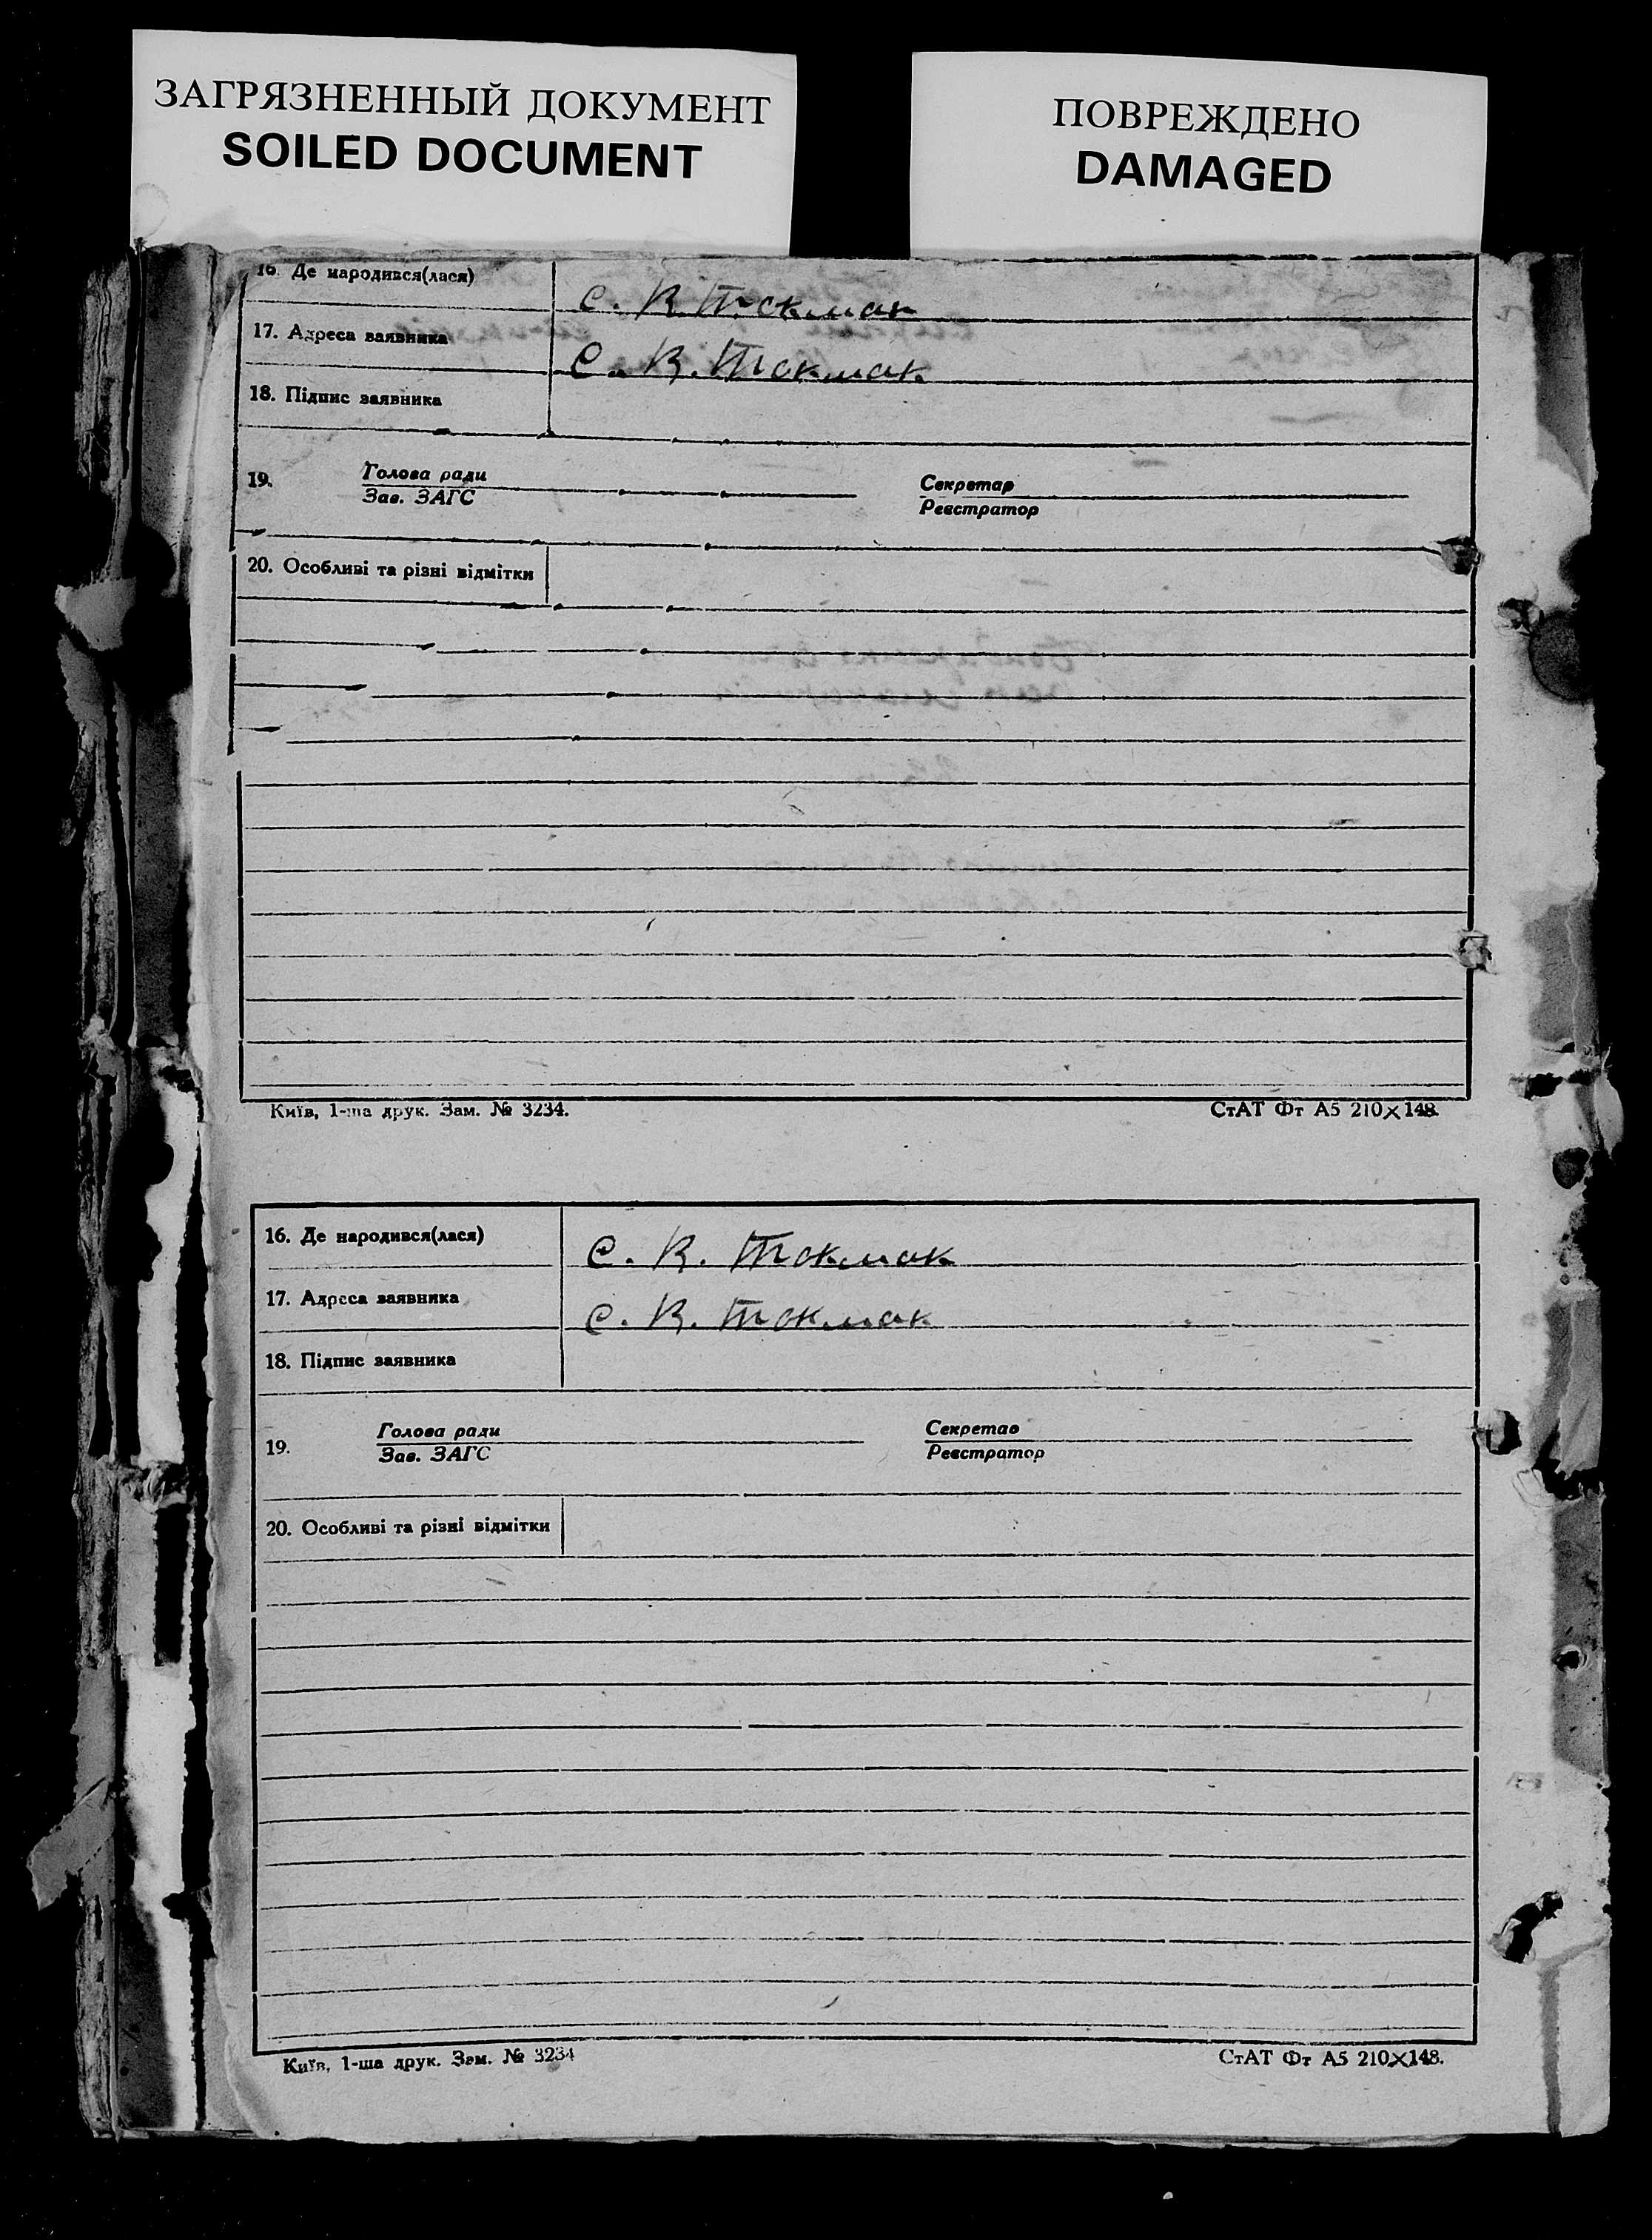 ЗАГРЯЗНЕННЫЙ ДОКУМЕНТ
SOILED DOCUMENT
ПОВРЕЖДЕНО
DAMAGED
16. Де народився(лася) с. В. Токмак
17. Адреса заявника с. В. Токмак
18. Підпис заявника
19. Голова ради Секретар
Зав. ЗАГС Реєстратор
20. Особливі та різні відмітки
Київ, 1-ша друк. Зам. № 3234. СтАТ Фт А5 210×148.
16. Де народився(лася) с. В. Токмак
17. Адреса заявника с. В. Токмак
18. Підпис заявника
19. Голова ради Секретар
Зав. ЗАГС Реєстратор
20. Особливі та різні відмітки
Київ, 1-ша друк. Зам. № 3234 СтАТ Фт А5 210×148.